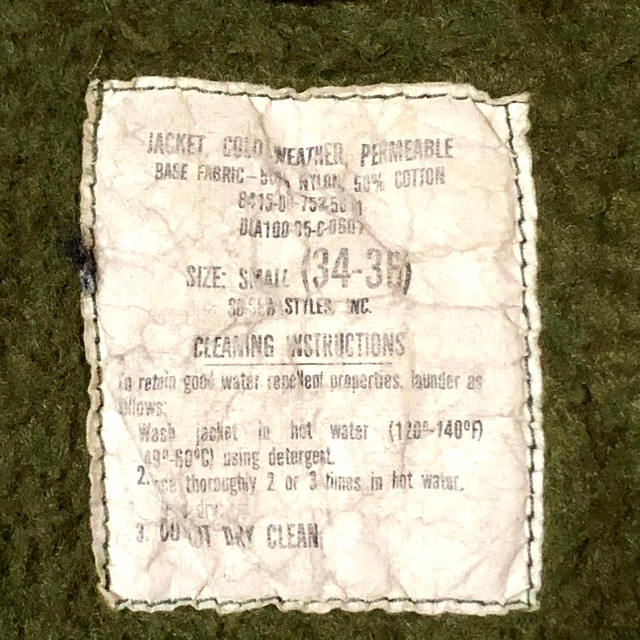 JACKET, COLD WEATHER, PERMEABLE
BASE FABRIC-50% NYLON, 50% COTTON
DLA100-85-C-
SIZE: SMALL (34-36)
STYLES, INC.
CLEANING INSTRUCTIONS
To retain good water repellent properties, launder as
follows:
Wash jacket in hot water (120º-140ºF)
(49º-60ºC) using detergent.
2. thoroughly 2 or 3 times in hot water.
dry.
3. DO NOT DRY CLEAN.